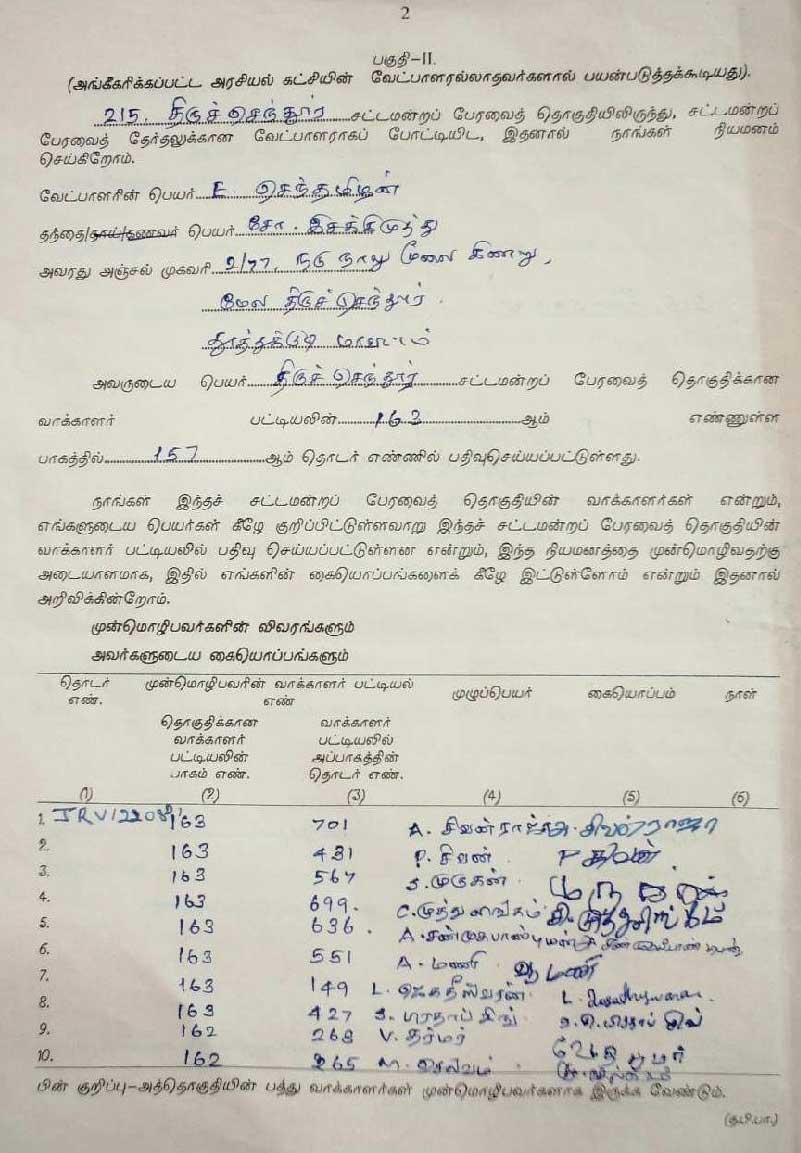 2
பகுதி-II.
(அங்கீகரிக்கப்பட்ட அரசியல் கட்சியின் வேட்பாளரல்லாதவர்களால் பயன்படுத்தக்கூடியது).
215. திருச்செந்தூர் சட்டமன்றப் பேரவைத் தொகுதியிலிருந்து, சட்டமன்றப்
பேரவைத் தேர்தலுக்கான வேட்பாளராகப் போட்டியிட, இதனால் நாங்கள் நியமனம்
செய்கிறோம்.
வேட்பாளரின் பெயர் E. செந்தமிழன்
தந்தை/தாய்/கணவர் பெயர் சோ. இசக்கிமுத்து
அவரது அஞ்சல் முகவரி 2/77, நடு நாலு மூலை கிணறு,
மேல திருச்செந்தூர்.
தூத்துக்குடி மாவட்டம்
அவருடைய பெயர் திருச்செந்தூர் சட்டமன்றப் பேரவைத் தொகுதிக்கான
வாக்காளர் பட்டியலின் 163 ஆம் எண்ணுள்ள
பாகத்தில் 157 ஆம் தொடர் எண்ணில் பதிவுசெய்யப்பட்டுள்ளது.
நாங்கள் இந்தச் சட்டமன்றப் பேரவைத் தொகுதியின் வாக்காளர்கள் என்றும்,
எங்களுடைய பெயர்கள் கீழே குறிப்பிட்டுள்ளவாறு இந்தச் சட்டமன்றப் பேரவைத் தொகுதியின்
வாக்காளர் பட்டியலில் பதிவு செய்யப்பட்டுள்ளன என்றும், இந்த நியமனத்தை முன்மொழிவதற்கு
அடையாளமாக, இதில் எங்களின் கையொப்பங்களைக் கீழே இட்டுள்ளோம் என்றும் இதனால்
அறிவிக்கின்றோம்.
முன்மொழிபவர்களின் விவரங்களும்
அவர்களுடைய கையொப்பங்களும்
தொடர் முன்மொழிபவரின் வாக்காளர் பட்டியல் முழுப்பெயர் கையொப்பம் நாள்
எண். எண்
தொகுதிக்கான வாக்காளர்
வாக்காளர் பட்டியலில்
பட்டியலின் அப்பாகத்தின்
பாகம் எண். தொடர் எண்.
(1) (2) (3) (4) (5) (6)
1. 163 701 A. சிவன்ராஜ் அ. சிவன்ராஜா
2. 163 431 P. சிவன்
3. 163 567 S. முருகன்
4. 163 699. C. முத்துலிங்கம்
5. 163 636. A. சண்முகபாண்டியன்
6. 163 551 A. மணி ஆ மணி
7. 163 149 L. ஜெகதீஸ்வரன்
8. 163 427 S. பிரதாப் சிங்
9. 162 268 V. தர்மர்
10. 162 265 M. செல்வம்
பின் குறிப்பு-அத்தொகுதியின் பத்து வாக்காளர்கள் முன்மொழிபவர்களாக இருக்க வேண்டும்.
(கு.பி.பா.)